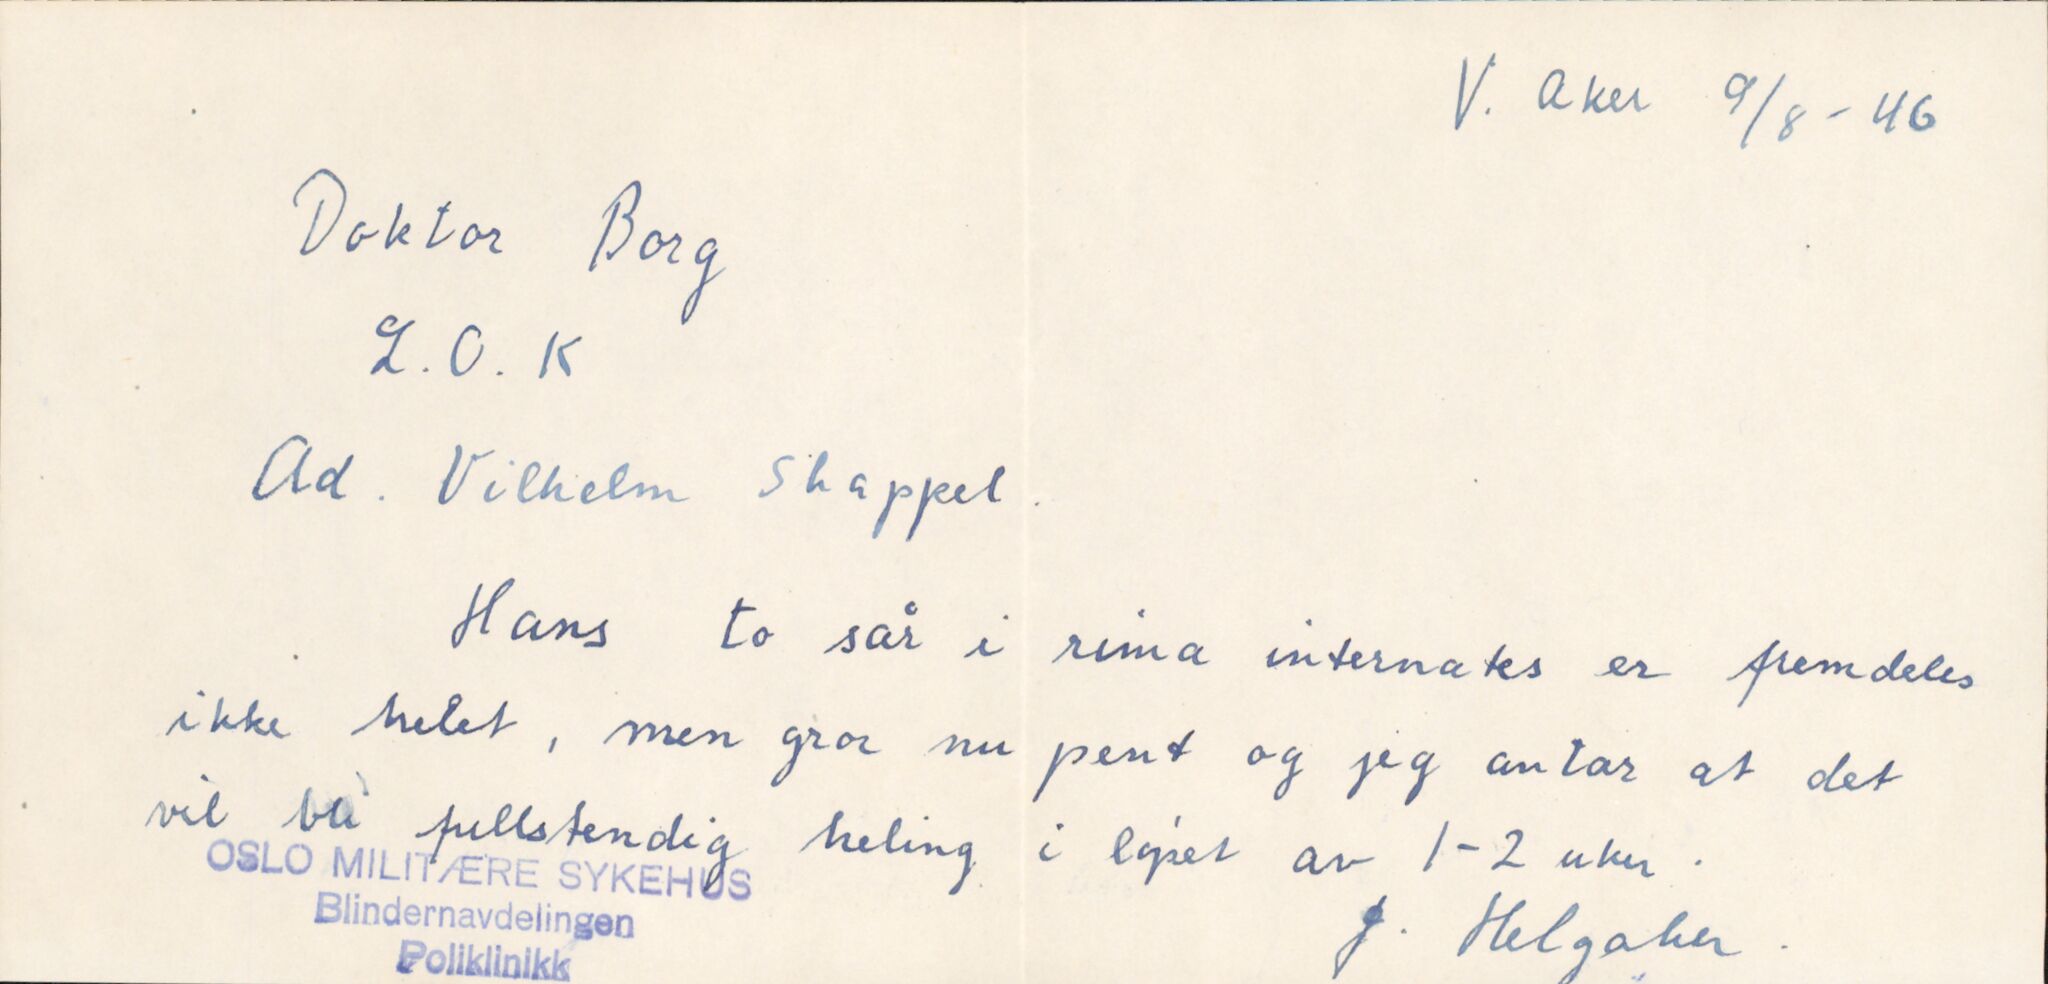 V. Aker 9/8-46
Doktor Borg
L.O.K
Ad. Vilhelm Skappel.
Hans to sår i rima internates er fremdeles
ikke helet, men gror nu pent og jeg antar at det
vil bli fullstendig heling i løpet av 1-2 uker.
J. Helgaker.
OSLO MILITÆRE SYKEHUS
Blindernavdelingen
Poliklinikk